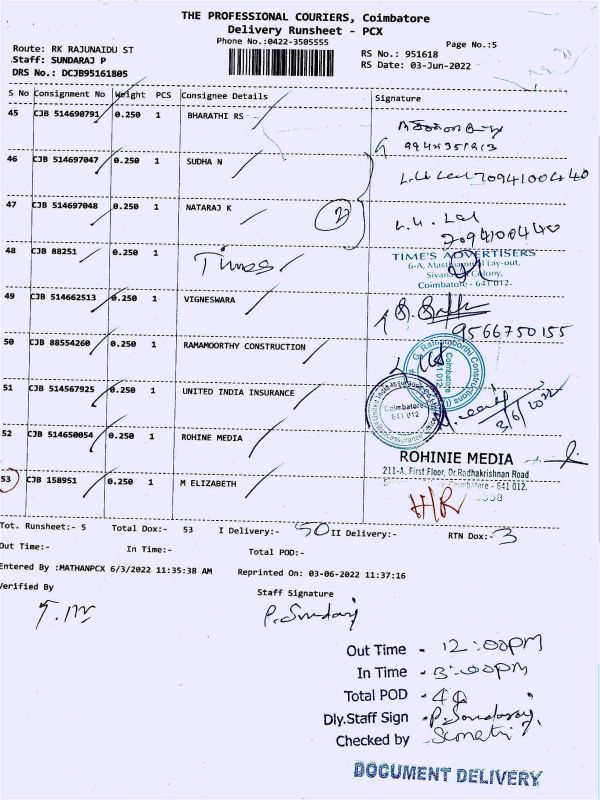 THE PROFESSIONAL COURIERS, Coimbatore
Delivery Runsheet - PCX
Phone No.:0422-3505555
Page No.:5
Route: RK RAJUNAIDU ST
RS No.: 951618
Staff: SUNDARAJ P
RS Date: 03-Jun-2022
DRS No.: DCJB95161805
S No Consignment No Weight PCS Consignee Details Signature
45 CJB 514690791 0.250 1 BHARATHI RS
46 CJB 514697047 0.250 1 SUDHA N
7094100440
47 CJB 514697048 0.250 1 NATARAJ K
2
L.U. Lal
7094100440
48 CJB 88251 0.250 1 Times
TIME'S ADVERTISERS
Colony,
Coimbatore - 641 012.
49 CJB 514662513 0.250 1 VIGNESWARA
9566750155
50 CJB 88554260 0.250 1 RAMAMOORTHY CONSTRUCTION
Coimbatore
641 012
51 CJB 514567925 0.250 1 UNITED INDIA INSURANCE
Coimbatore
641 012
3/6/2022
52 CJB 514650054 0.250 1 ROHINE MEDIA
ROHINIE MEDIA
211-A, First Floor, Dr.Radhakrishnan Road
Coimbatore - 641 012.
53 CJB 158951 0.250 1 M ELIZABETH
H/R
Tot. Runsheet:- 5 Total Dox:- 53 I Delivery:- 50 II Delivery:- RTN Dox:- 3
Out Time:- In Time:- Total POD:-
Entered By :MATHANPCX 6/3/2022 11:35:38 AM Reprinted On: 03-06-2022 11:37:16
Verified By
Staff Signature
P. Sundaraj
Out Time - 12:00PM
In Time - 3:00PM
Total POD -
Dly.Staff Sign - P. Sundaraj
Checked by -
DOCUMENT DELIVERY